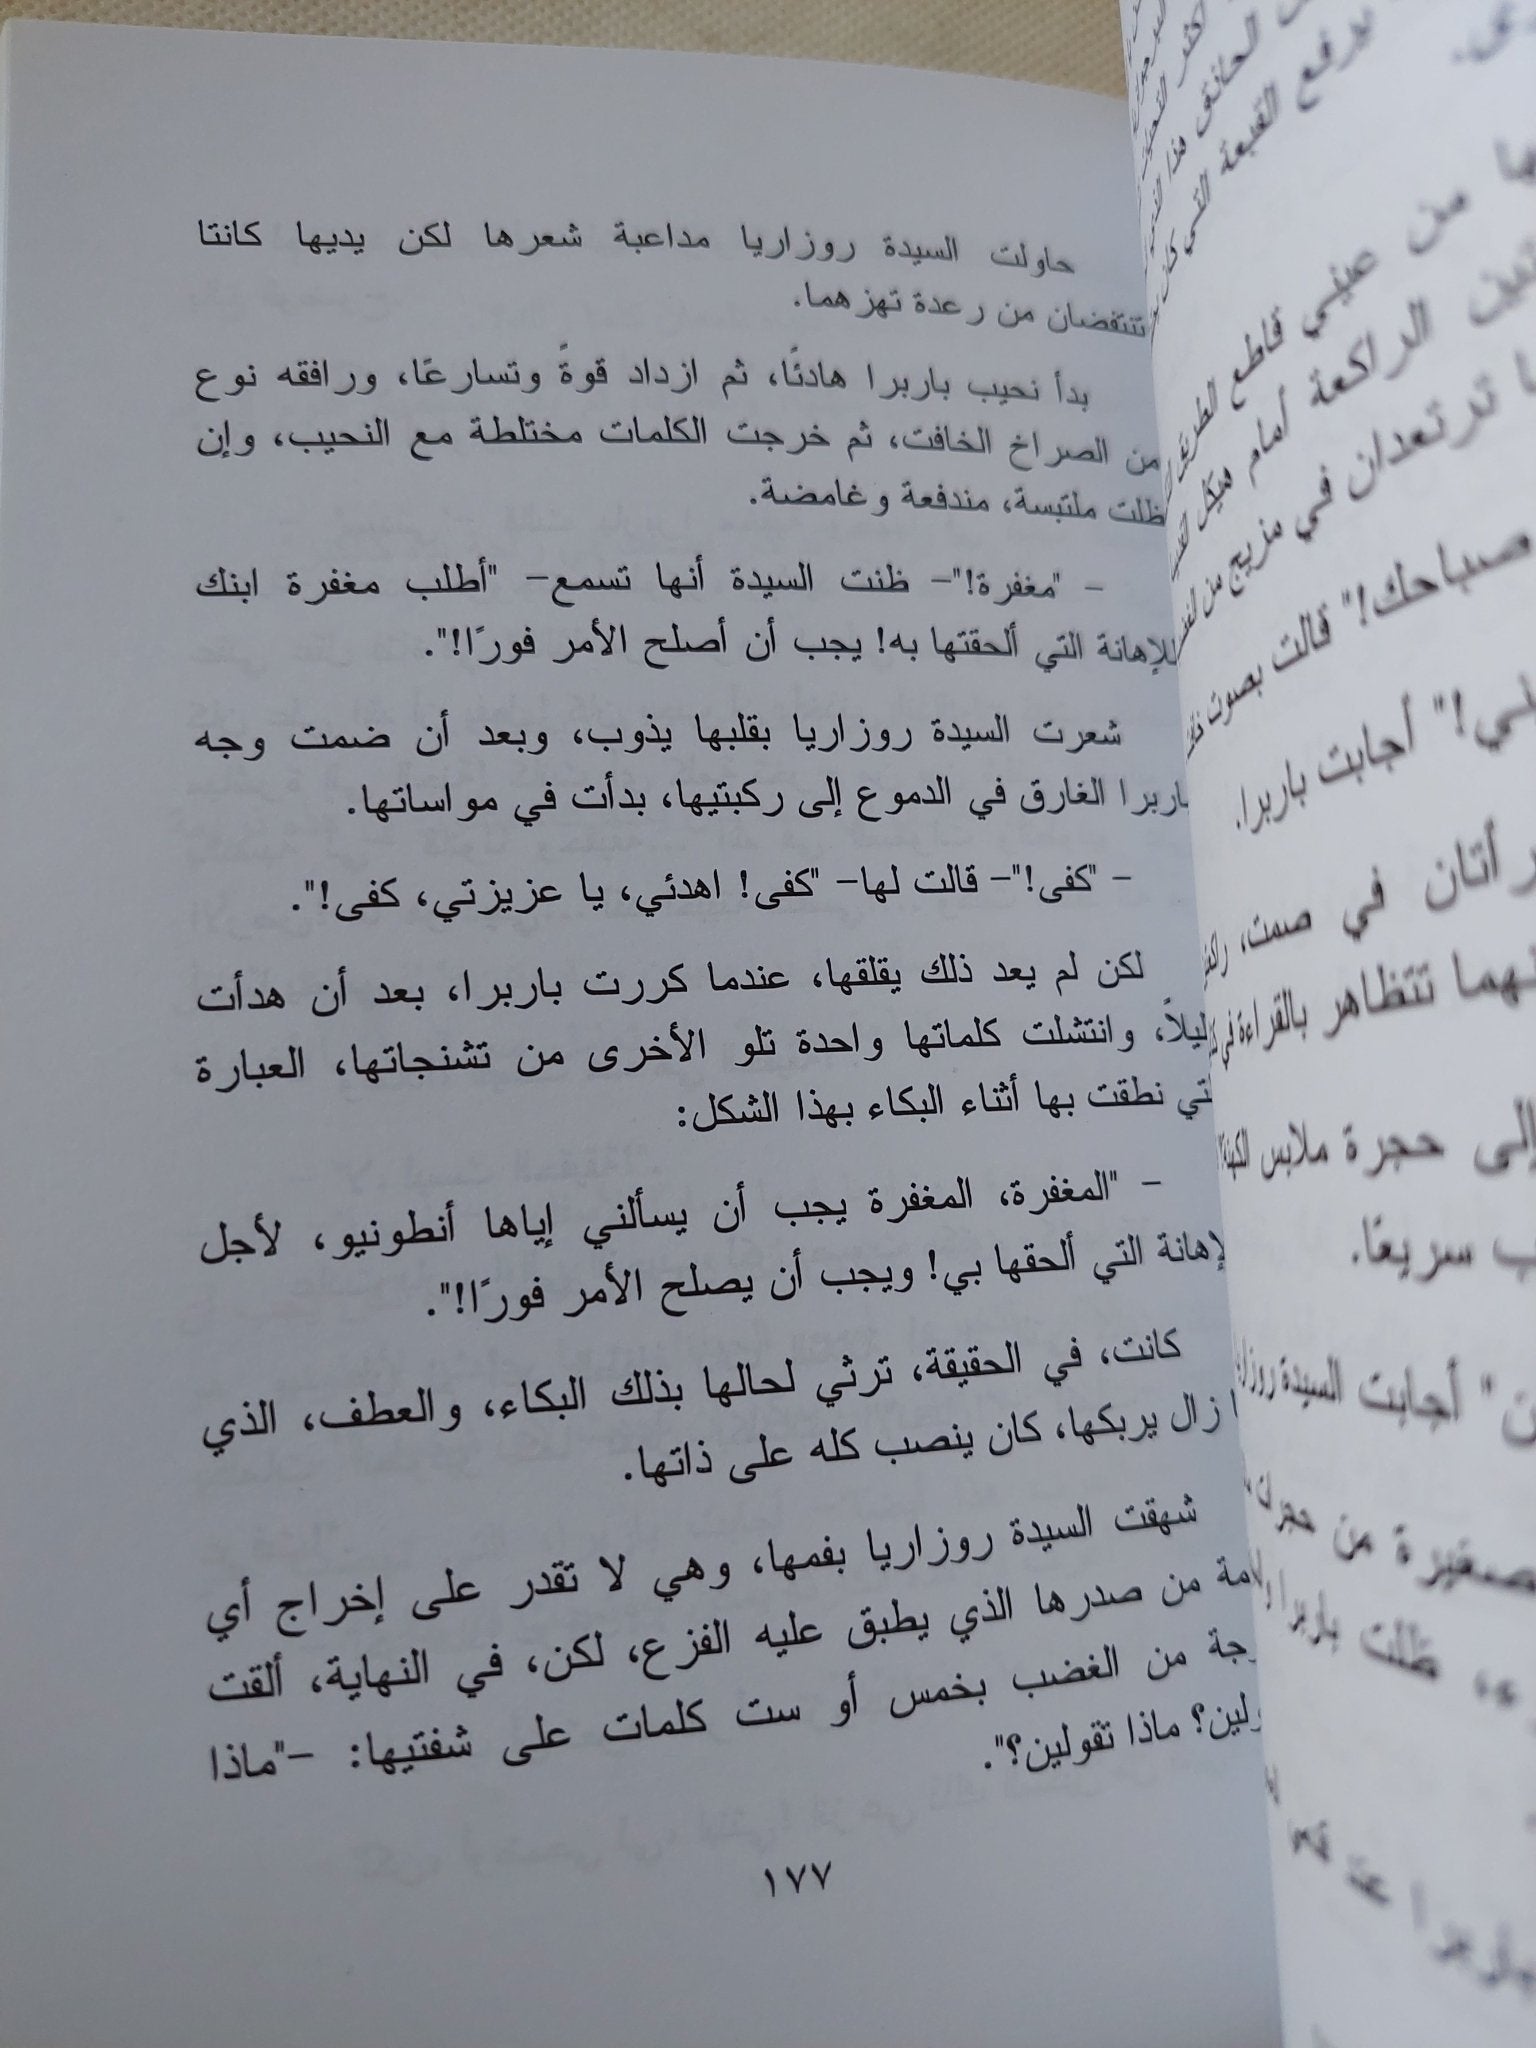 حاولت السيدة روزاريا مداعبة شعرها لكن يديها كانتا
تنتفضان من رعدة تهزهما.
بدأ نحيب باربرا هادئًا، ثم ازداد قوةً وتسارعًا، ورافقه نوع
من الصراخ الخافت، ثم خرجت الكلمات مختلطة مع النحيب، وإن
ظلت ملتبسة، مندفعة وغامضة.
- "مغفرة!"- ظنت السيدة أنها تسمع- "أطلب مغفرة ابنك
للإهانة التي ألحقتها به! يجب أن أصلح الأمر فورًا!".
شعرت السيدة روزاريا بقلبها يذوب، وبعد أن ضمت وجه
باربرا الغارق في الدموع إلى ركبتيها، بدأت في مواساتها.
- "كفى!"- قالت لها- "كفى! اهدئي، يا عزيزتي، كفى!".
لكن لم يعد ذلك يقلقها، عندما كررت باربرا، بعد أن هدأت
ليلاً، وانتشلت كلماتها واحدة تلو الأخرى من تشنجاتها، العبارة
تي نطقت بها أثناء البكاء بهذا الشكل:
- "المغفرة، المغفرة يجب أن يسألني إياها أنطونيو، لأجل
لإهانة التي ألحقها بي! ويجب أن يصلح الأمر فورًا!".
كانت، في الحقيقة، ترثي لحالها بذلك البكاء، والعطف، الذي
ا زال يربكها، كان ينصب كله على ذاتها.
شهقت السيدة روزاريا بفمها، وهي لا تقدر على إخراج أي
مة من صدرها الذي يطبق عليه الفزع، لكن، في النهاية، ألقت
جة من الغضب بخمس أو ست كلمات على شفتيها: -"ماذا
ولين؟ ماذا تقولين؟".
١٧٧
يرفع القبعة التي
من عيني قاطع الطريق
الراكعة أمام هيكل
ترتعدان في مزيج من
صباحك!" قالت بصوت
أجابت باربرا.
في صمت،
تتظاهر بالقراءة في
إلى حجرة ملابس الكهنة
سريعًا.
" أجابت السيدة
صغيرة من
ظلت باربرا